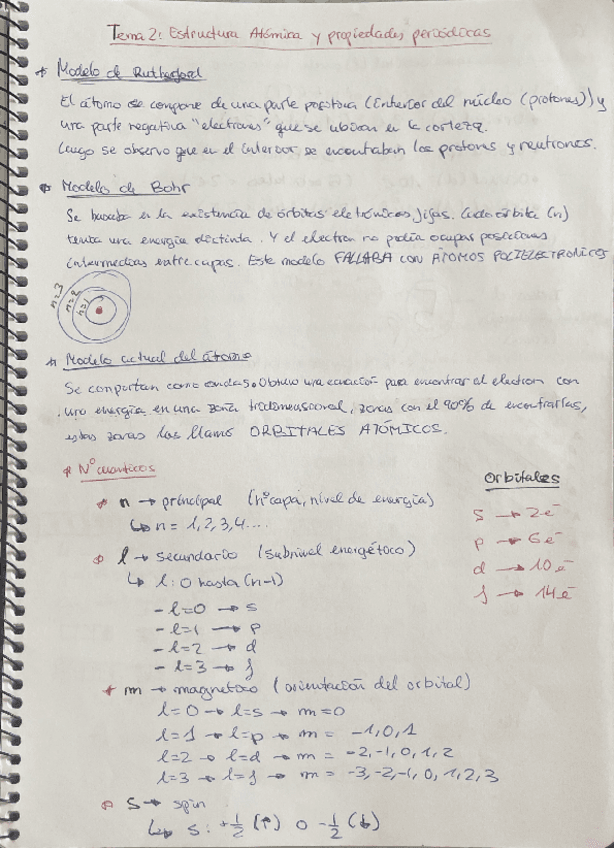 Tema 2: Estructura Atómica y propiedades periódicas
Modelo de Rutherford
El átomo se compone de una parte positiva (interior del núcleo (protones)) y
una parte negativa "electrones" que se ubican en la corteza.
Luego se observo que en el interior se encontraban los protones y neutrones.
Modelo de Bohr
Se basaba en la existencia de órbitas electrónicas fijas. Cada órbita (n)
tenía una energía distinta. Y el electron no podía ocupar posiciones
intermedias entre capas. Este modelo FALLABA CON ÁTOMOS POLIELECTRONICOS
n=3
n=2
n=1
Modelo actual del átomo
Se comportan como ondas. Obtuvo una ecuación para encontrar al electron con
una energía en una zona tridimensional, zonas con el 90% de encontrarlas,
estas zonas las llamó ORBITALES ATÓMICOS.
Nº cuanticos
n → principal (nº capa, nivel de energía)
↳ n = 1, 2, 3, 4....
l → secundario (subnivel energético)
↳ l: 0 hasta (n-1)
- l=0 → s
- l=1 → p
- l=2 → d
- l=3 → f
Orbitales
s → 2e⁻
p → 6e⁻
d → 10e⁻
f → 14e⁻
m → magnetico (orientación del orbital)
l=0 → l=s → m=0
l=1 → l=p → m = -1, 0, 1
l=2 → l=d → m = -2, -1, 0, 1, 2
l=3 → l=f → m = -3, -2, -1, 0, 1, 2, 3
s → spin
↳ s: +1/2 (↑) o -1/2 (↓)